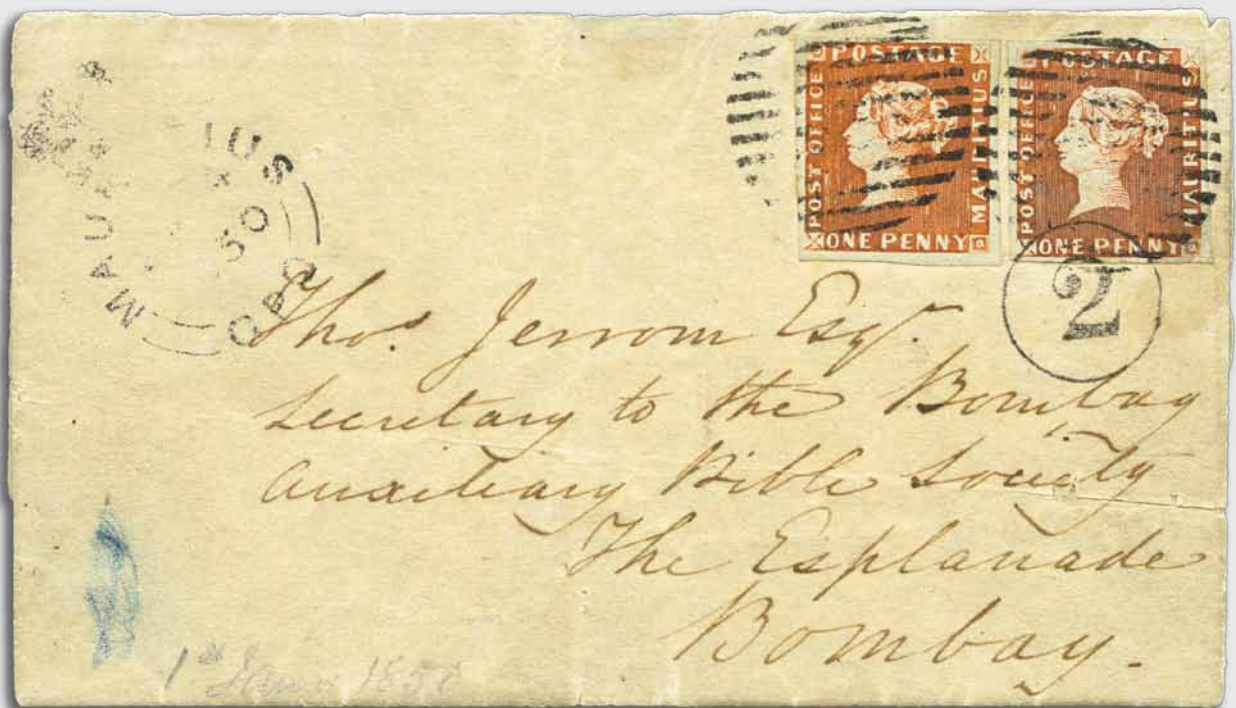 POSTAGE
POST OFFICE
MAURITIUS
ONE PENNY
POSTAGE
POST OFFICE
MAURITIUS
ONE PENNY
50
GPO
2
Thos. Jerrom Esqr.
Secretary to the Bombay
Auxiliary Bible Society
The Esplanade
Bombay.